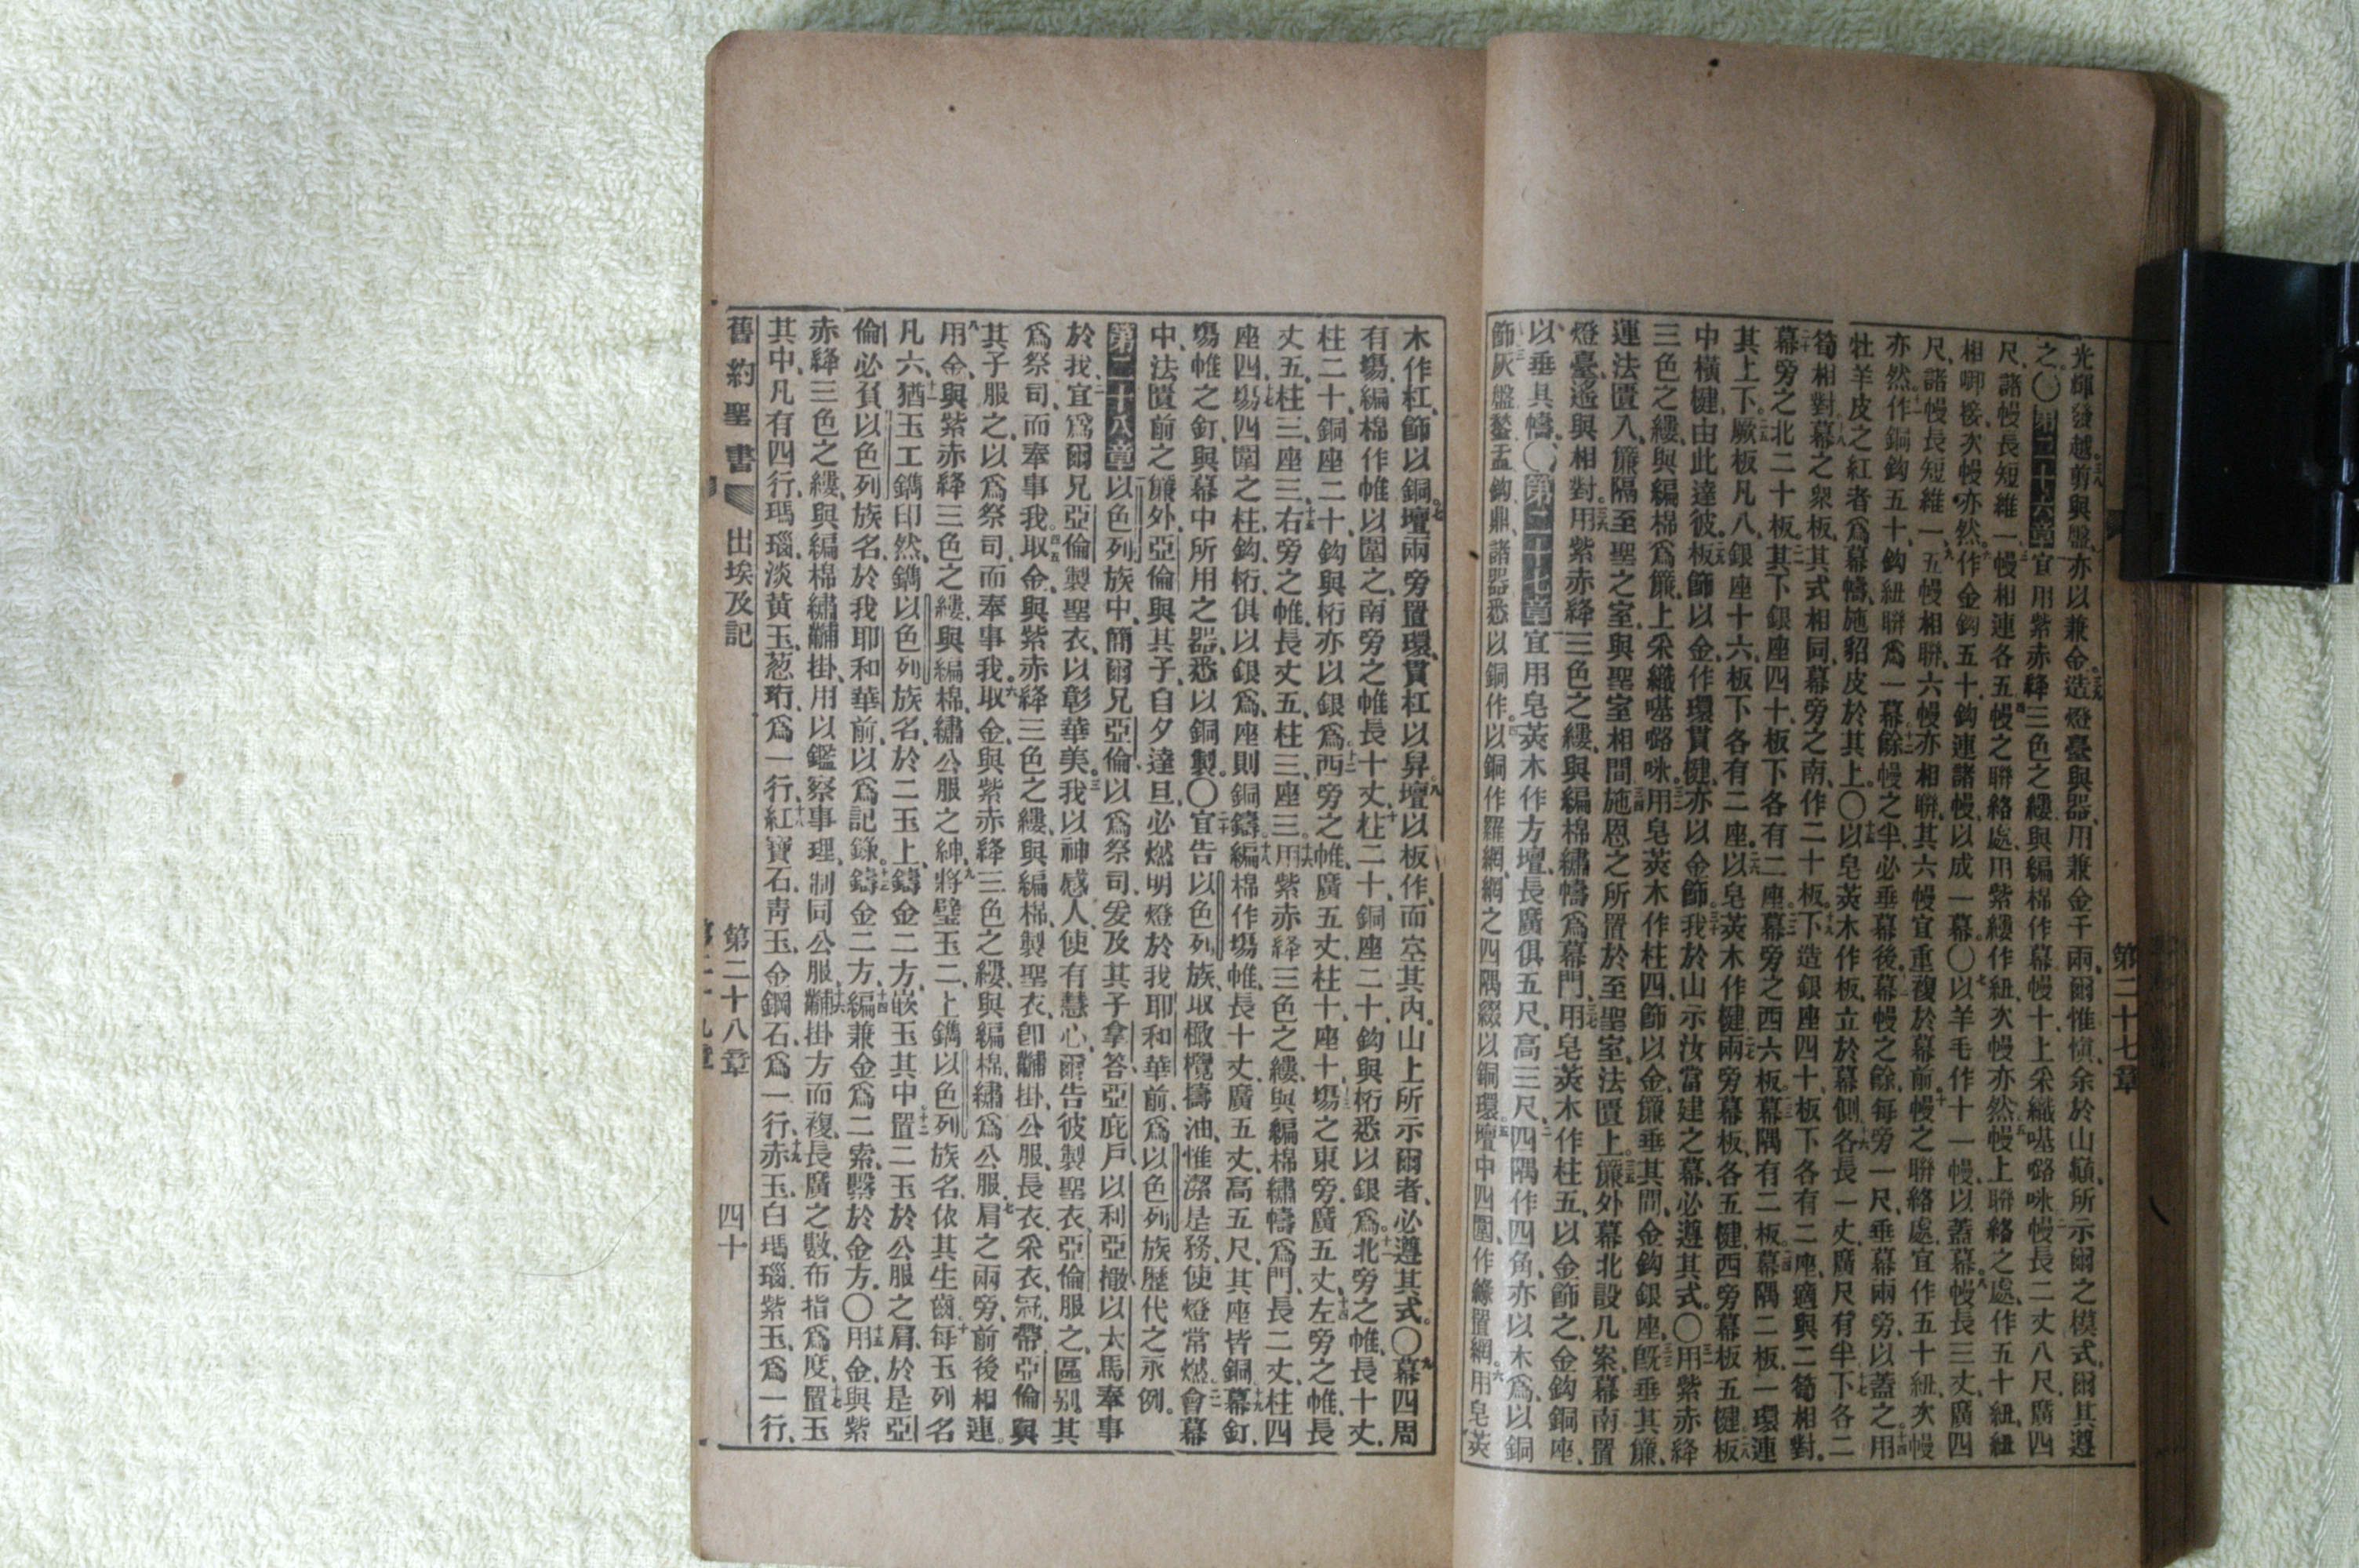 光輝發越、剪與盤、亦以兼金。造燈臺與器、用兼金千兩、爾惟愼、余於山巓所示爾之模式、爾其遵
之。〇第二十六章 宜用紫赤絳三色之縷、與編棉作幕幔十、上采織㗎𡀔咪、幔長二丈八尺、廣四
尺、諸幔長短維一、幔相連各五、幔之聨絡處、用紫縷作紐、次幔亦然、幔上聨絡之處、作五十紐、紐
相嘟接、次幔亦然、作金鈎五十、鈎連諸幔、以成一幕。〇以羊毛作十一幔、以蓋幕、幔長三丈、廣四
尺、諸幔長短維一、五幔相聨、六幔亦相聨、其六幔宜重複於幕前、幔之聨絡處、宜作五十紐、次幔
亦然、作銅鈎五十、鈎紐聨爲一幕、餘幔之半、必垂幕後、幕幔之餘、每旁一尺、垂幕兩旁、以蓋之。用
牡羊皮之紅者爲幕幬、施貂皮於其上。〇以皂莢木作板、立於幕側、各長一丈、廣尺有半、下各二
筍相對、幕之衆板、其式相同、幕旁之南、作二十板、下造銀座四十、板下各有二座、適與二筍相對。
幕旁之北二十板、其下銀座四十、板下各有二座、幕旁之西六板、幕隅有二板、幕隅二板、一環連
其上下、厥板凡八、銀座十六、板下各有二座。以皂莢木作楗、兩旁幕板、各五楗、西旁幕板五楗、板
中橫楗、由此達彼、板飾以金、作環貫楗、亦以金飾、我於山示汝當建之幕、必遵其式。〇用紫赤絳
三色之縷、與編棉爲簾、上采織㗎𡀔咪、用皂莢木作柱四、飾以金、簾垂其間、金鈎銀座、旣垂其簾、
運法匱入、簾隔至聖之室、與聖室相間、施恩之所、置於至聖室、法匱上。簾外幕北設几案、幕南置
燈臺、遙與相對。用紫赤絳三色之縷、與編棉、繡幬爲幕門、用皂莢木作柱五、以金飾之、金鈎銅座、
以垂其幬。〇第二十七章 宜用皂莢木作方壇、長廣俱五尺、高三尺、四隅作四角、亦以木爲、以銅
飾、灰盤、鍫、盂、鈎、鼎、諸器悉以銅作、以銅作羅網、網之四隅、綴以銅環、壇中四圍、作緣置網。用皂莢
木作杠、飾以銅、壇兩旁置環、貫杠以舁、壇以板作、而空其內、山上所示爾者、必遵其式。〇幕四周
有塲、編棉作帷以圍之、南旁之帷、長十丈、柱二十、銅座二十、鈎與桁悉以銀爲。北旁之帷、長十丈、
柱二十、銅座二十、鈎與桁亦以銀爲。西旁之帷、廣五丈、柱十、座十、塲之東旁、廣五丈、左旁之帷、長
丈五、柱三、座三、右旁之帷、長丈五、柱三、座三。用紫赤絳三色之縷、與編棉、繡幬爲門、長二丈、柱四
座四、塲四圍之柱、鈎桁俱以銀爲、座則銅鑄。編棉作塲帷、長十丈、廣五丈、高五尺、其座皆銅、幕釘、
塲帷之釘、與幕中所用之器、悉以銅製。〇宜告以色列族、取橄欖擣油、惟潔是務、使燈常燃、會幕
中、法匱前之簾外、亞倫與其子、自夕達旦、必燃明燈於我耶和華前、爲以色列族歷代之永例。
第二十八章 以色列族中、簡爾兄亞倫、以爲祭司、爰及其子拿答、亞庇戶、以利亞撒、以大馬奉事
於我、宜爲爾兄亞倫製聖衣、以彰華美。我以神感人、使有慧心、爾告彼製聖衣、亞倫服之、區別其
爲祭司、而奉事我。取金、與紫赤絳三色之縷、與編棉、製聖衣、卽黼掛、公服、長衣、采衣、冠、帶、亞倫與
其子服之、以爲祭司、而奉事我。取金、與紫赤絳三色之縷、與編棉、繡爲公服、肩之兩旁、前後相連。
用金、與紫赤絳三色之縷、與編棉、繡公服之紳、將璧玉二、上鐫以色列族名、依其生齒、每玉列名
凡六、猶玉工鐫印然、鐫以色列族名、於二玉上、鑄金二方、嵌玉其中、置二玉於公服之肩、於是亞
倫必負以色列族名、於我耶和華前、以爲記錄、鑄金二方、編兼金爲二索、繫於金方。〇用金、與紫
赤絳三色之縷、與編棉繡黼掛、用以鑑察事理、制同公服、黼掛方而複、長廣之數、布指爲度、置玉
其中、凡有四行、瑪瑙、淡黃玉、葱珩、爲一行、紅寶石、青玉、金鋼石、爲一行、赤玉、白瑪瑙、紫玉、爲一行、
舊約聖書 出埃及記 第二十八章 四十